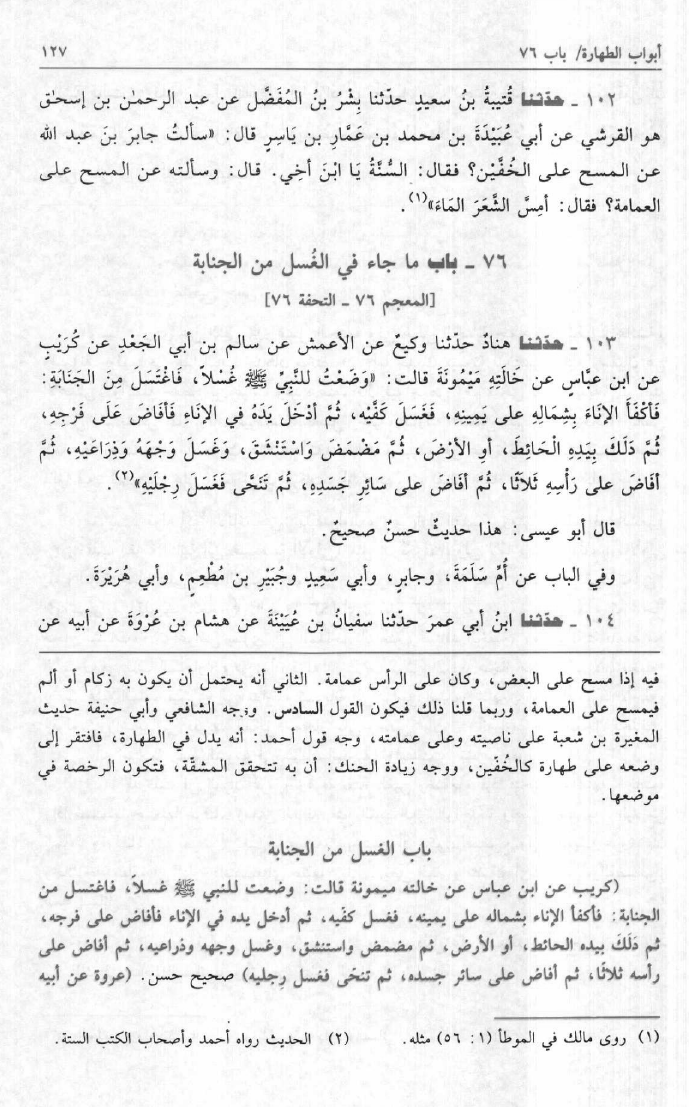 أبواب الطهارة/ باب ٧٦
١٢٧
١٠٢ ـ حدّثنا قُتيبةُ بنُ سعيدٍ حدّثنا بِشْرُ بنُ المُفَضَّل عن عبد الرحمٰن بن إسحٰق
هو القرشي عن أبي عُبَيْدَةَ بن محمد بن عَمَّارِ بن يَاسِرٍ قال: «سألتُ جابرَ بنَ عبد الله
عن المسح على الخُفَّيْن؟ فقال: السُّنَّةُ يَا ابْنَ أخِي. قال: وسألته عن المسح على
العمامة؟ فقال: أمِسَّ الشَّعَرَ المَاءَ»(١).
٧٦ ـ باب ما جاء في الغُسل من الجنابة
[المعجم ٧٦ ـ التحفة ٧٦]
١٠٣ ـ حدّثنا هنادٌ حدّثنا وكيعٌ عن الأعمش عن سالم بن أبي الجَعْدِ عن كُرَيْبٍ
عن ابن عبَّاسٍ عن خَالَتِهِ مَيْمُونَةَ قالت: «وَضَعْتُ للنبيِّ ﷺ غُسْلاً، فَاغْتَسَلَ مِنَ الجَنَابَةِ:
فَأكْفَأَ الإنَاءَ بِشِمَالِهِ على يَمِينِهِ، فَغَسَلَ كَفَّيْه، ثُمَّ أدْخَلَ يَدَهُ في الإنَاءِ فَأفَاضَ عَلَى فَرْجِهِ،
ثُمَّ دَلَكَ بِيَدِهِ الْحَائِطَ، أوِ الأرْضَ، ثُم مَضْمَضَ وَاسْتَنْشَقَ، وَغَسَلَ وَجْهَهُ وَذِرَاعَيْهِ، ثُمَّ
أفَاضَ على رَأْسِهِ ثَلاَثًا، ثُمَّ أفَاضَ على سَائِرِ جَسَدِهِ، ثُمَّ تَنَحَّى فَغَسَلَ رِجْلَيْهِ»(٢).
قال أبو عيسى: هذا حديثٌ حسنٌ صحيحٌ.
وفي الباب عن أُمِّ سَلَمَةَ، وجابرٍ، وأبي سَعِيدٍ وجُبَيْرِ بن مُطْعِمٍ، وأبي هُرَيْرَةَ.
١٠٤ ـ حدّثنا ابنُ أبي عمرَ حدّثنا سفيانُ بن عُيَيْنَةَ عن هشام بن عُرْوَةَ عن أبيه عن
فيه إذا مسح على البعض، وكان على الرأس عمامة. الثاني أنه يحتمل أن يكون به زكام أو ألم
فيمسح على العمامة، وربما قلنا ذلك فيكون القول السادس. وجه الشافعي وأبي حنيفة حديث
المغيرة بن شعبة على ناصيته وعلى عمامته، وجه قول أحمد: أنه يدل في الطهارة، فافتقر إلى
وضعه على طهارة كالخُفّين، ووجه زيادة الحنك: أن به تتحقق المشقّة، فتكون الرخصة في
موضعها.
باب الغسل من الجنابة
(كريب عن ابن عباس عن خالته ميمونة قالت: وضعت للنبي ﷺ غسلاً، فاغتسل من
الجنابة: فأكفأ الإناء بشماله على يمينه، فغسل كفّيه، ثم أدخل يده في الإناء فأفاض على فرجه،
ثم دَلَكَ بيده الحائط، أو الأرض، ثم مضمض واستنشق، وغسل وجهه وذراعيه، ثم أفاض على
رأسه ثلاثًا، ثم أفاض على سائر جسده، ثم تنحّى فغسل رِجليه) صحيح حسن. (عروة عن أبيه
(١) روى مالك في الموطأ (١: ٥٦) مثله.
(٢) الحديث رواه أحمد وأصحاب الكتب الستة.